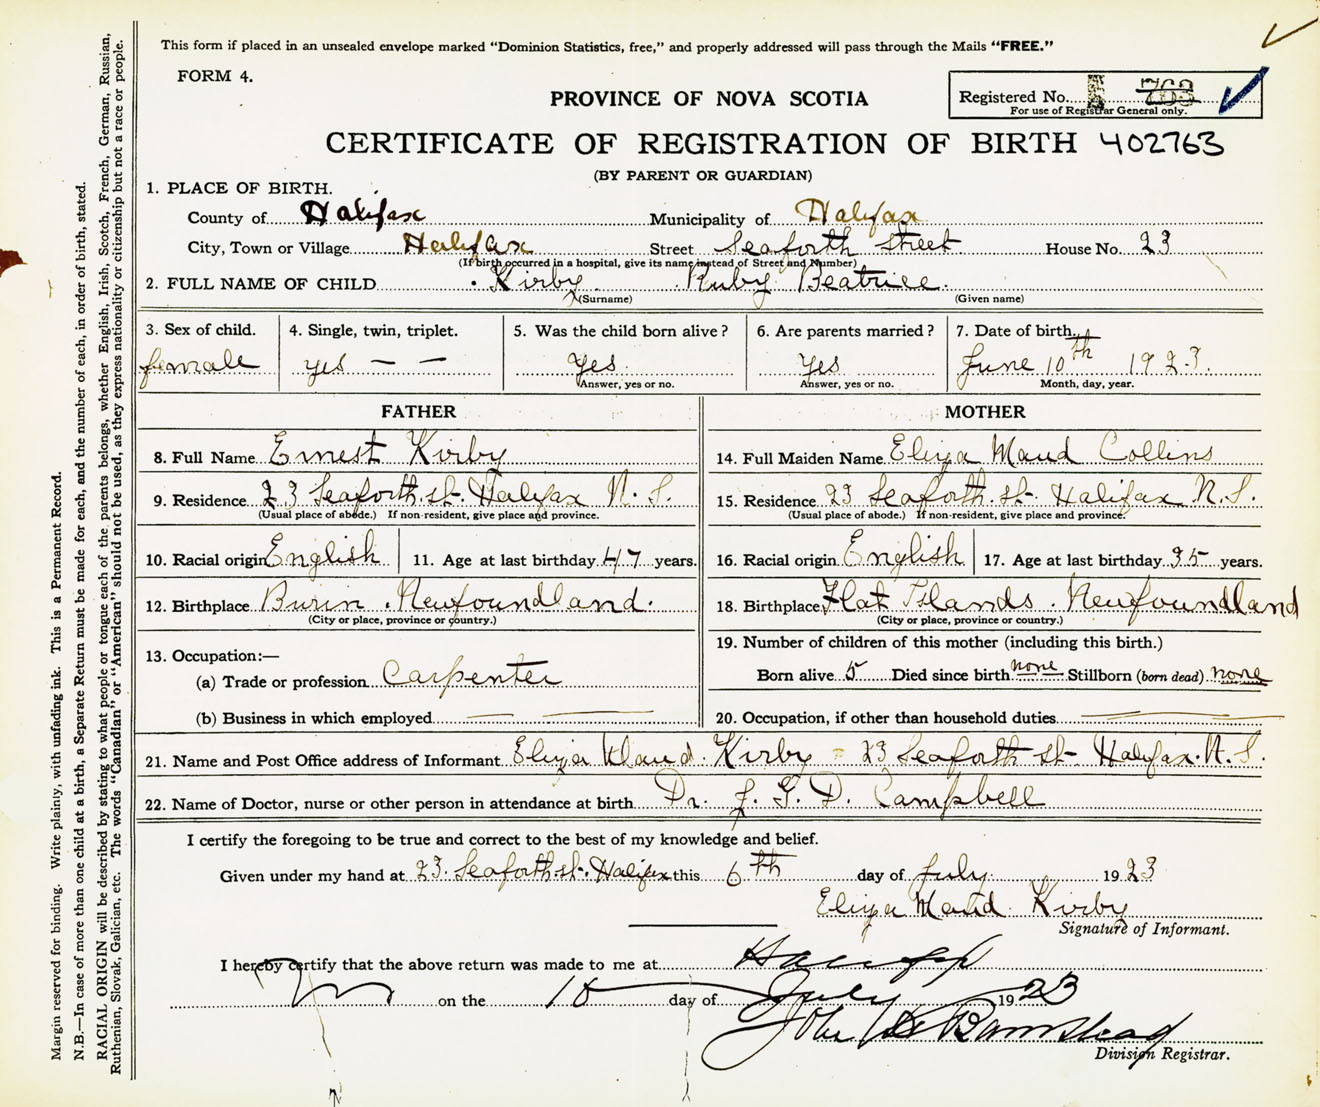 This form if placed in an unsealed envelope marked "Dominion Statistics, free," and properly addressed will pass through the Mails "FREE."
FORM 4.
Registered No. 763
For use of Registrar General only.
PROVINCE OF NOVA SCOTIA
CERTIFICATE OF REGISTRATION OF BIRTH 402763
(BY PARENT OR GUARDIAN)
1. PLACE OF BIRTH.
County of Halifax Municipality of Halifax
City, Town or Village Halifax Street Seaforth Street House No. 23
(If birth occurred in a hospital, give its name instead of Street and Number)
2. FULL NAME OF CHILD Kirby Ruby Beatrice
(Surname) (Given name)
3. Sex of child. 4. Single, twin, triplet. 5. Was the child born alive? 6. Are parents married? 7. Date of birth.
female yes — — Yes Yes June 10th 1923.
Answer, yes or no. Answer, yes or no. Month, day, year.
FATHER MOTHER
8. Full Name Ernest Kirby 14. Full Maiden Name Eliza Maud Collins
9. Residence 23 Seaforth. st. Halifax N. S. 15. Residence 23 Seaforth. st. Halifax N. S.
(Usual place of abode.) If non-resident, give place and province. (Usual place of abode.) If non-resident, give place and province.
10. Racial origin English 11. Age at last birthday 47 years. 16. Racial origin English 17. Age at last birthday 35 years.
12. Birthplace Burin . Newfoundland. 18. Birthplace Flat Islands . Newfoundland
(City or place, province or country.) (City or place, province or country.)
13. Occupation:— 19. Number of children of this mother (including this birth.)
(a) Trade or profession Carpenter Born alive 5 Died since birth none Stillborn (born dead) none
(b) Business in which employed — — 20. Occupation, if other than household duties
21. Name and Post Office address of Informant Eliza Maud Kirby - 23 Seaforth st- Halifax. N. S.
22. Name of Doctor, nurse or other person in attendance at birth Dr. J. G. D. Campbell
I certify the foregoing to be true and correct to the best of my knowledge and belief.
Given under my hand at 23. Seaforth. st. Halifax this 6th day of July 1923
Eliza Maud Kirby
Signature of Informant.
I hereby certify that the above return was made to me at Halifax
on the 10 day of July 1923
John
Division Registrar.
Margin reserved for binding. Write plainly, with unfading ink. This is a Permanent Record.
N.B.—In case of more than one child at a birth, a Separate Return must be made for each, and the number of each, in order of birth, stated.
RACIAL ORIGIN will be described by stating to what people or tongue each of the parents belongs, whether English, Irish, Scotch, French, German, Russian,
Ruthenian, Slovak, Galician, etc. The words "Canadian" or "American" should not be used, as they express nationality or citizenship but not a race or people.